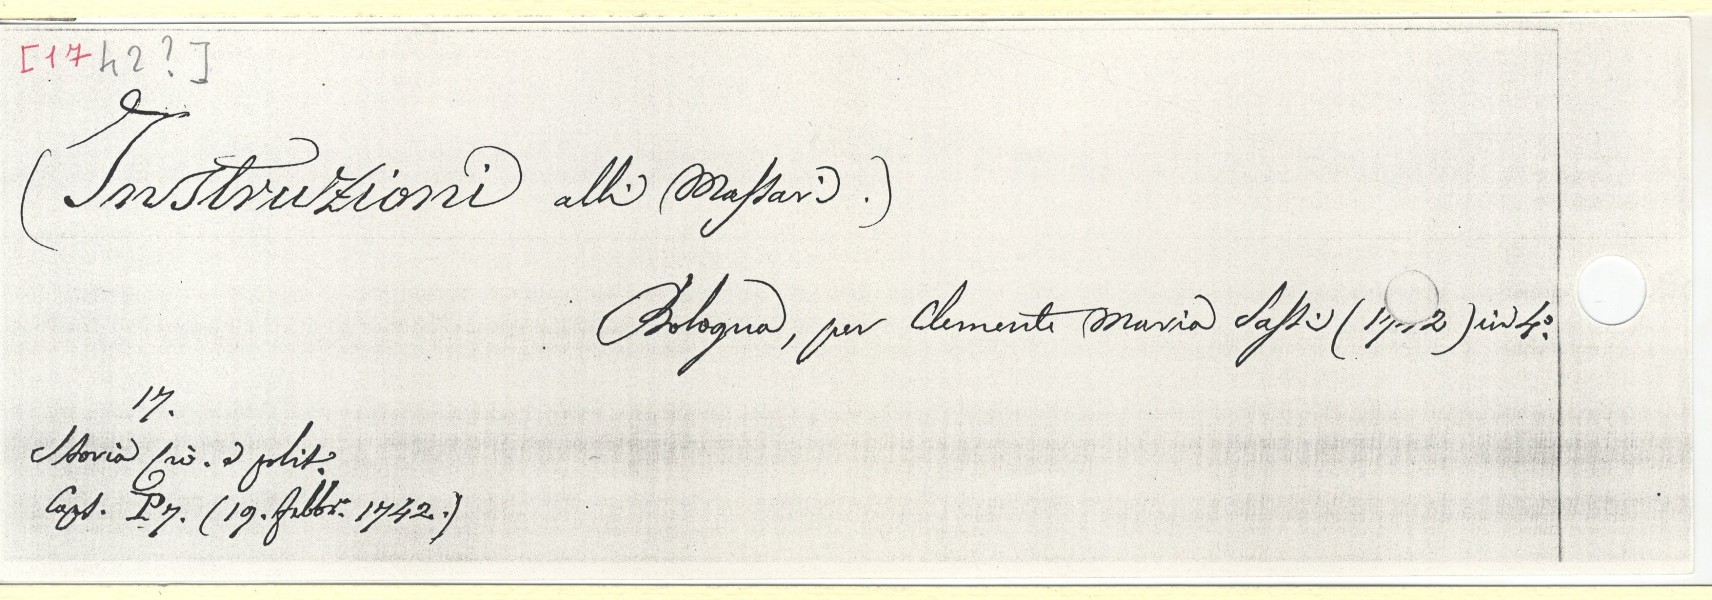 [1742?]
(Instruzioni alli Massari.)
Bologna, per Clemente Maria Sassi (1742) in 4°.
17.
Storia civ. e polit.
Cart. P7. (19. febbr. 1742.)